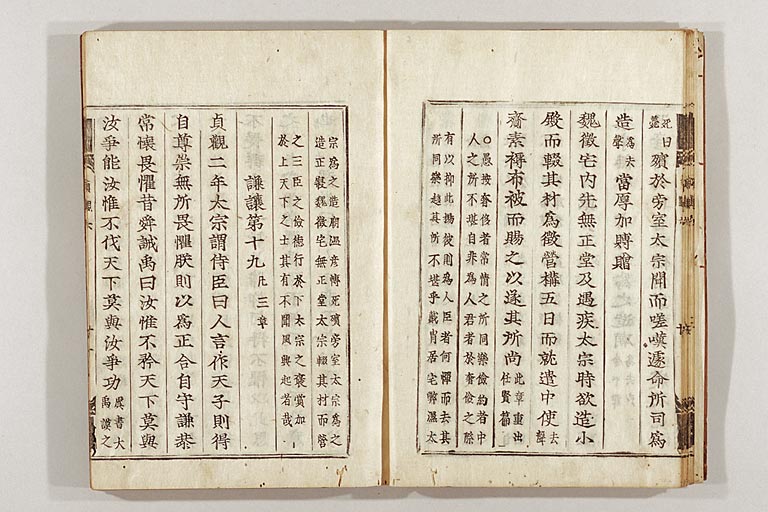 死日
殯於旁室太宗聞而嗟嘆遽命所司爲
造
當厚加賻贈
魏徵宅內先無正堂及遇疾太宗時欲造小
殿而輟其材爲徵營構五日而就遣中使
去聲
齎素褥布被而賜之以遂其所尚
此章重出
任賢篇
○愚按奢侈者常情之所同樂儉約者中
人之所不堪自非爲人君者於奢儉之際
有以抑此揚彼則爲人臣者何憚而去其
所同樂趨其所不堪乎戴胄居宅弊濕太
宗爲之造廟溫彥博死殯旁室太宗爲之
造正寢魏徵宅無正堂太宗輟其材而營
之三臣之儉德行於下太宗之褒賞加
於上天下之士其有不聞風興起者哉
謙讓第十九
凡三章
貞觀二年太宗謂侍臣曰人言作天子則得
自尊崇無所畏懼朕則以爲正合自守謙恭
常懷畏懼昔舜誡禹曰汝惟不矜天下莫與
汝爭能汝惟不伐天下莫與汝爭功
虞書大
禹謨之